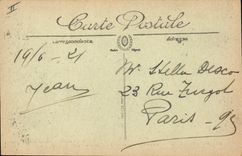 II
Carte Postale
Correspondance
Adresse
19/6-21
Jean
Mr Stella Desco
23 Rue Turgot
Paris - 9e